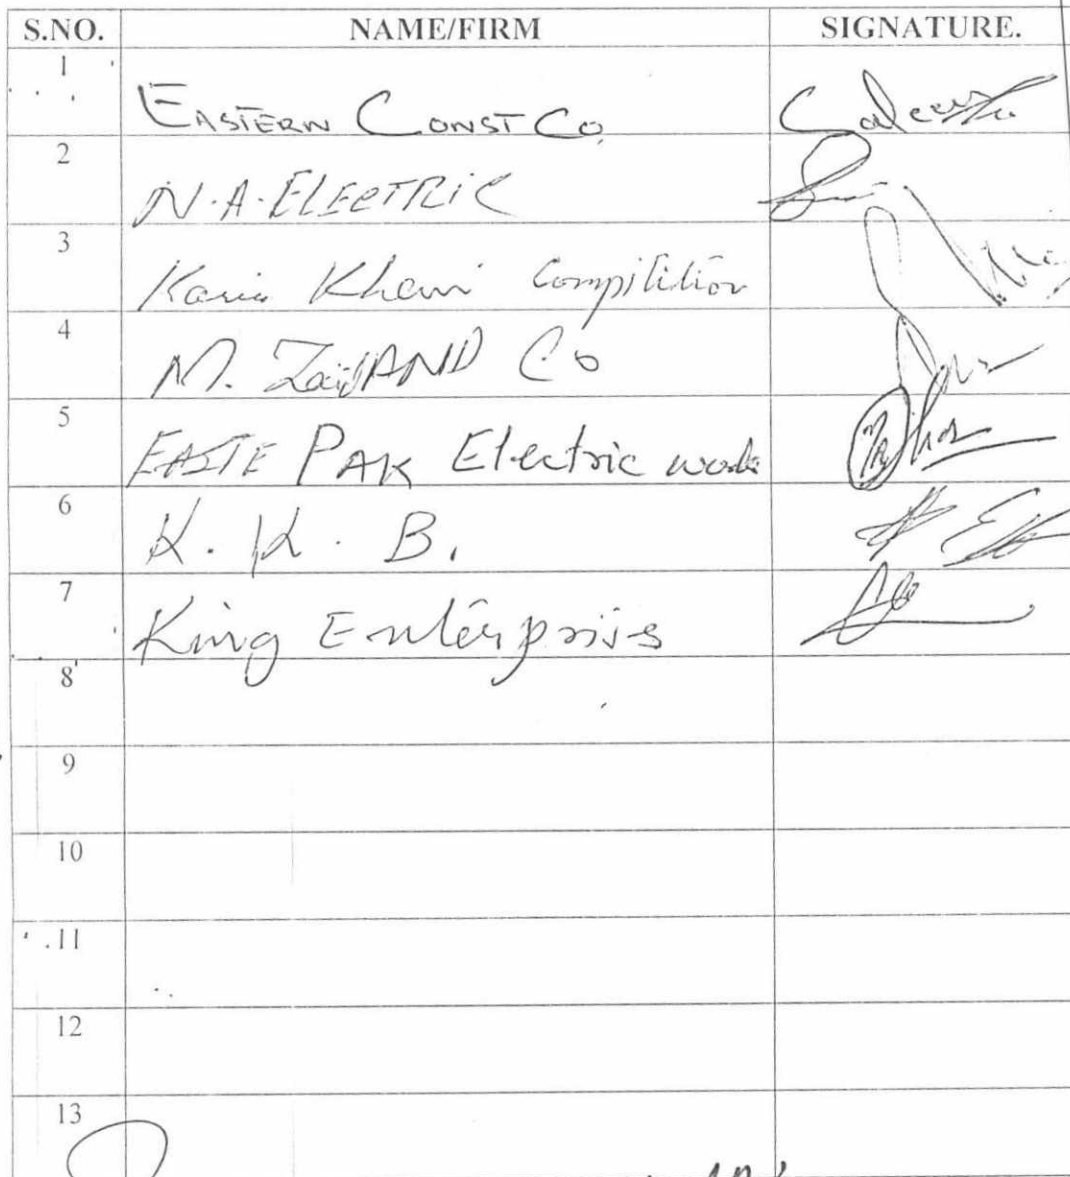 S.NO. NAME/FIRM SIGNATURE.
1 EASTERN CONST CO. Saleem
2 N.A. ELECTRIC
3 Karim Khani Compitition
4 M. Zaid AND Co
5 EASTE PAK Electric work
6 K. K. B.
7 King Enterprises
8
9
10
11
12
13